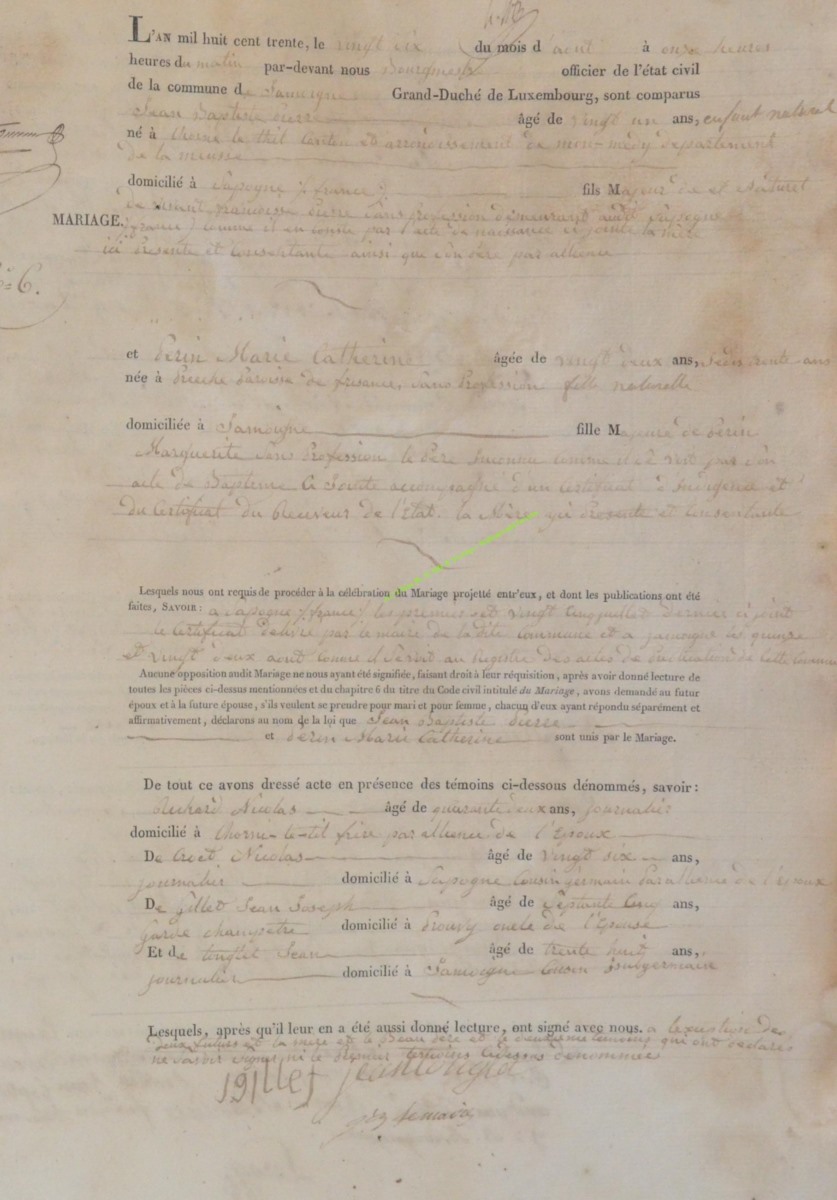 L'AN mil huit cent trente, le vingt six du mois d'aout à onze heures
heures du matin par-devant nous Bourgmestre officier de l'état civil
de la commune de Jamoigne Grand-Duché de Luxembourg, sont comparus
Jean Baptiste pierre âgé de vingt un ans, enfant naturel
né à thonne le thil Canton et arrondissement de mon-médy département
de la meuse
domicilié à Sapogne /france/ fils Majeur de et Naturel
MARIAGE.
françoise pierre sans profession demeurant audit Sapogne
/france/ comme il en conste par l'acte de naissance ci jointe la mère
ici présente et consentante ainsi que son père par alliance
6.
et périn Marie Catherine âgée de vingt deux ans,
née à paroisse de sans Profession fille naturelle
domiciliée à Jamoigne fille Majeure de périn
Marguerite sans Profession le père Inconnu comme il par son
acte de Baptême Ci Jointe accompagné d'un certificat d'Indigence et
du Certificat du Receveur de l'Etat. la Mère ici Présente et Consentante
Lesquels nous ont requis de procéder à la célébration du Mariage projetté entr'eux, et dont les publications ont été
faites, SAVOIR : a Sapogne /france/ les premier et vingt Cinq juillet dernier ci joint
le Certificat délivré par le maire de la dite commune et a jamoigne les quinze
et vingt deux aout comme il au Registre des actes de Publications de cette Commune
Aucune opposition audit Mariage ne nous ayant été signifiée, faisant droit à leur réquisition, après avoir donné lecture de
toutes les pièces ci-dessus mentionnées et du chapitre 6 du titre du Code civil intitulé du Mariage, avons demandé au futur
époux et à la future épouse, s'ils veulent se prendre pour mari et pour femme, chacun d'eux ayant répondu séparément et
affirmativement, déclarons au nom de la loi que Jean Baptiste pierre
et périn Marie Catherine sont unis par le Mariage.
De tout ce avons dressé acte en présence des témoins ci-dessous dénommés, savoir :
Nicolas âgé de quarante deux ans, journalier
domicilié à thonne-le-til frère par alliance de l'Epoux
De Nicolas âgé de vingt six ans,
journalier domicilié à Sapogne Cousin germain par alliance de l'époux
De gillet Jean Joseph âgé de septante Cinq ans,
garde champetre domicilié à Prouvy oncle de l'Epouse
Et de Jean âgé de trente huit ans,
journalier domicilié à Jamoigne Cousin
Lesquels, après qu'il leur en a été aussi donné lecture, ont signé avec nous. a l'exception des
deux futurs et la mère et le Beau père et le deuxième témoins qui ont déclaré
ne savoir signer ni le premier temoins ci dessus dénommés